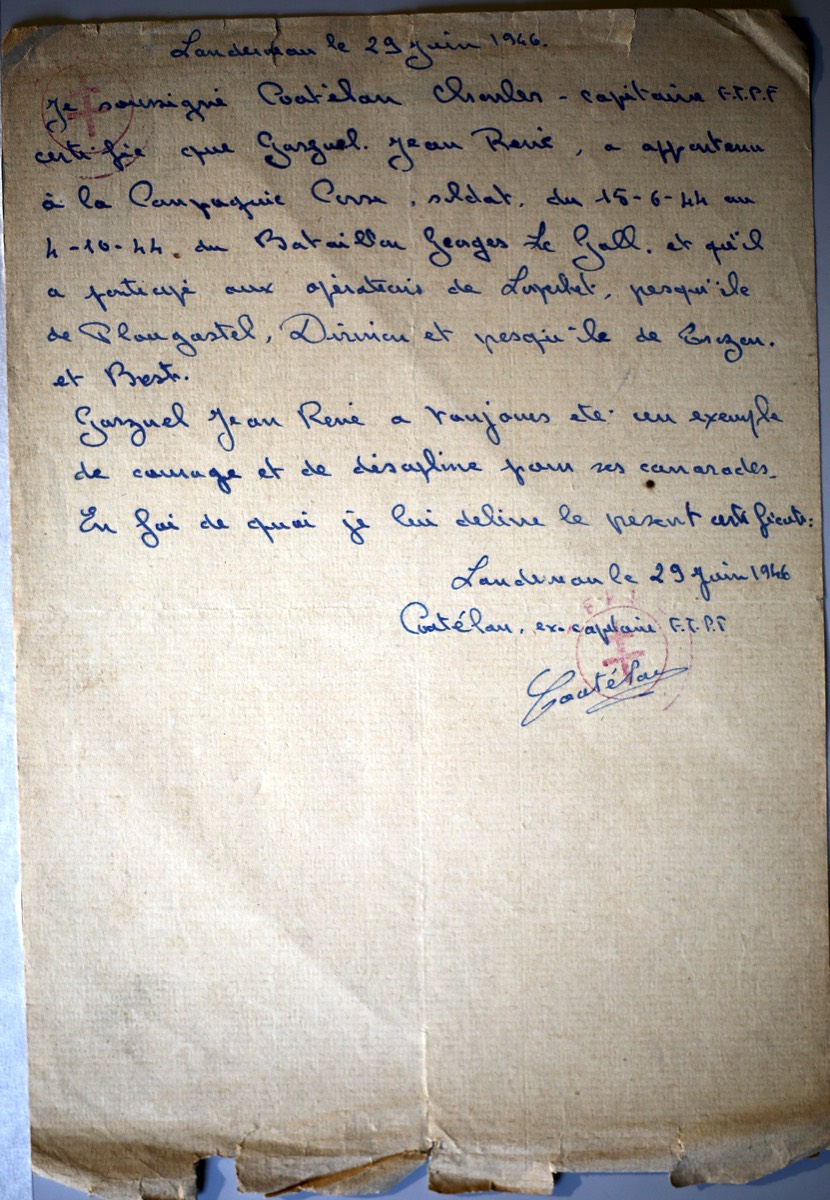 Landerneau le 29 Juin 1946.
Je soussigné Coatélan Charles - capitaine F.T.P.F
certifie que Gasguel. Jean René, a appartenu
à la Compagnie Corse, soldat, du 15-6-44 au
4-10-44. du Bataillon Georges Le Gall. et qu'il
a participé aux opérations de Loperhet, presqu'ile
de Plougastel, Dirinon et presqu'ile de Crozon.
et Brest.
Gasguel Jean René a toujours été un exemple
de courage et de discipline pour ses camarades.
En foi de quoi je lui délivre le présent certificat:
Landerneau le 29 Juin 1946
Coatélan, ex-capitaine F.T.P.F
F F I
Coatélan